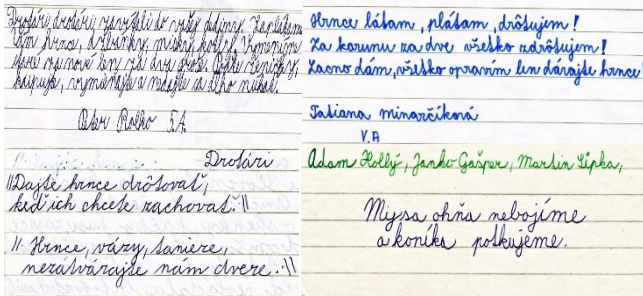 Drotári drotári zavítali do vašej dedinky. Zaplátam
vám hrnce, džbánky, misky, kotlík. Vymením
staré za nové len za dva groše.
kupujte, vymieňajte a nedajte sa dlho núkať.
Peter Rolko 5.A
Drotári
//Dajte hrnce drôtovať,
keď ich chcete zachovať.://
//: Hrnce, vázy, taniere,
nezatvárajte nám dvere.://
Hrnce látam, plátam, drôtujem!
Za korunu za dve všetko zdrôtujem!
Lacno dám, všetko opravím len dávajte hrnce!
Tatiana Minarčíková
V.A
Adam Hollý, Janko Gašper, Martin Lipka,
My sa ohňa nebojíme
a koníka potkujeme.